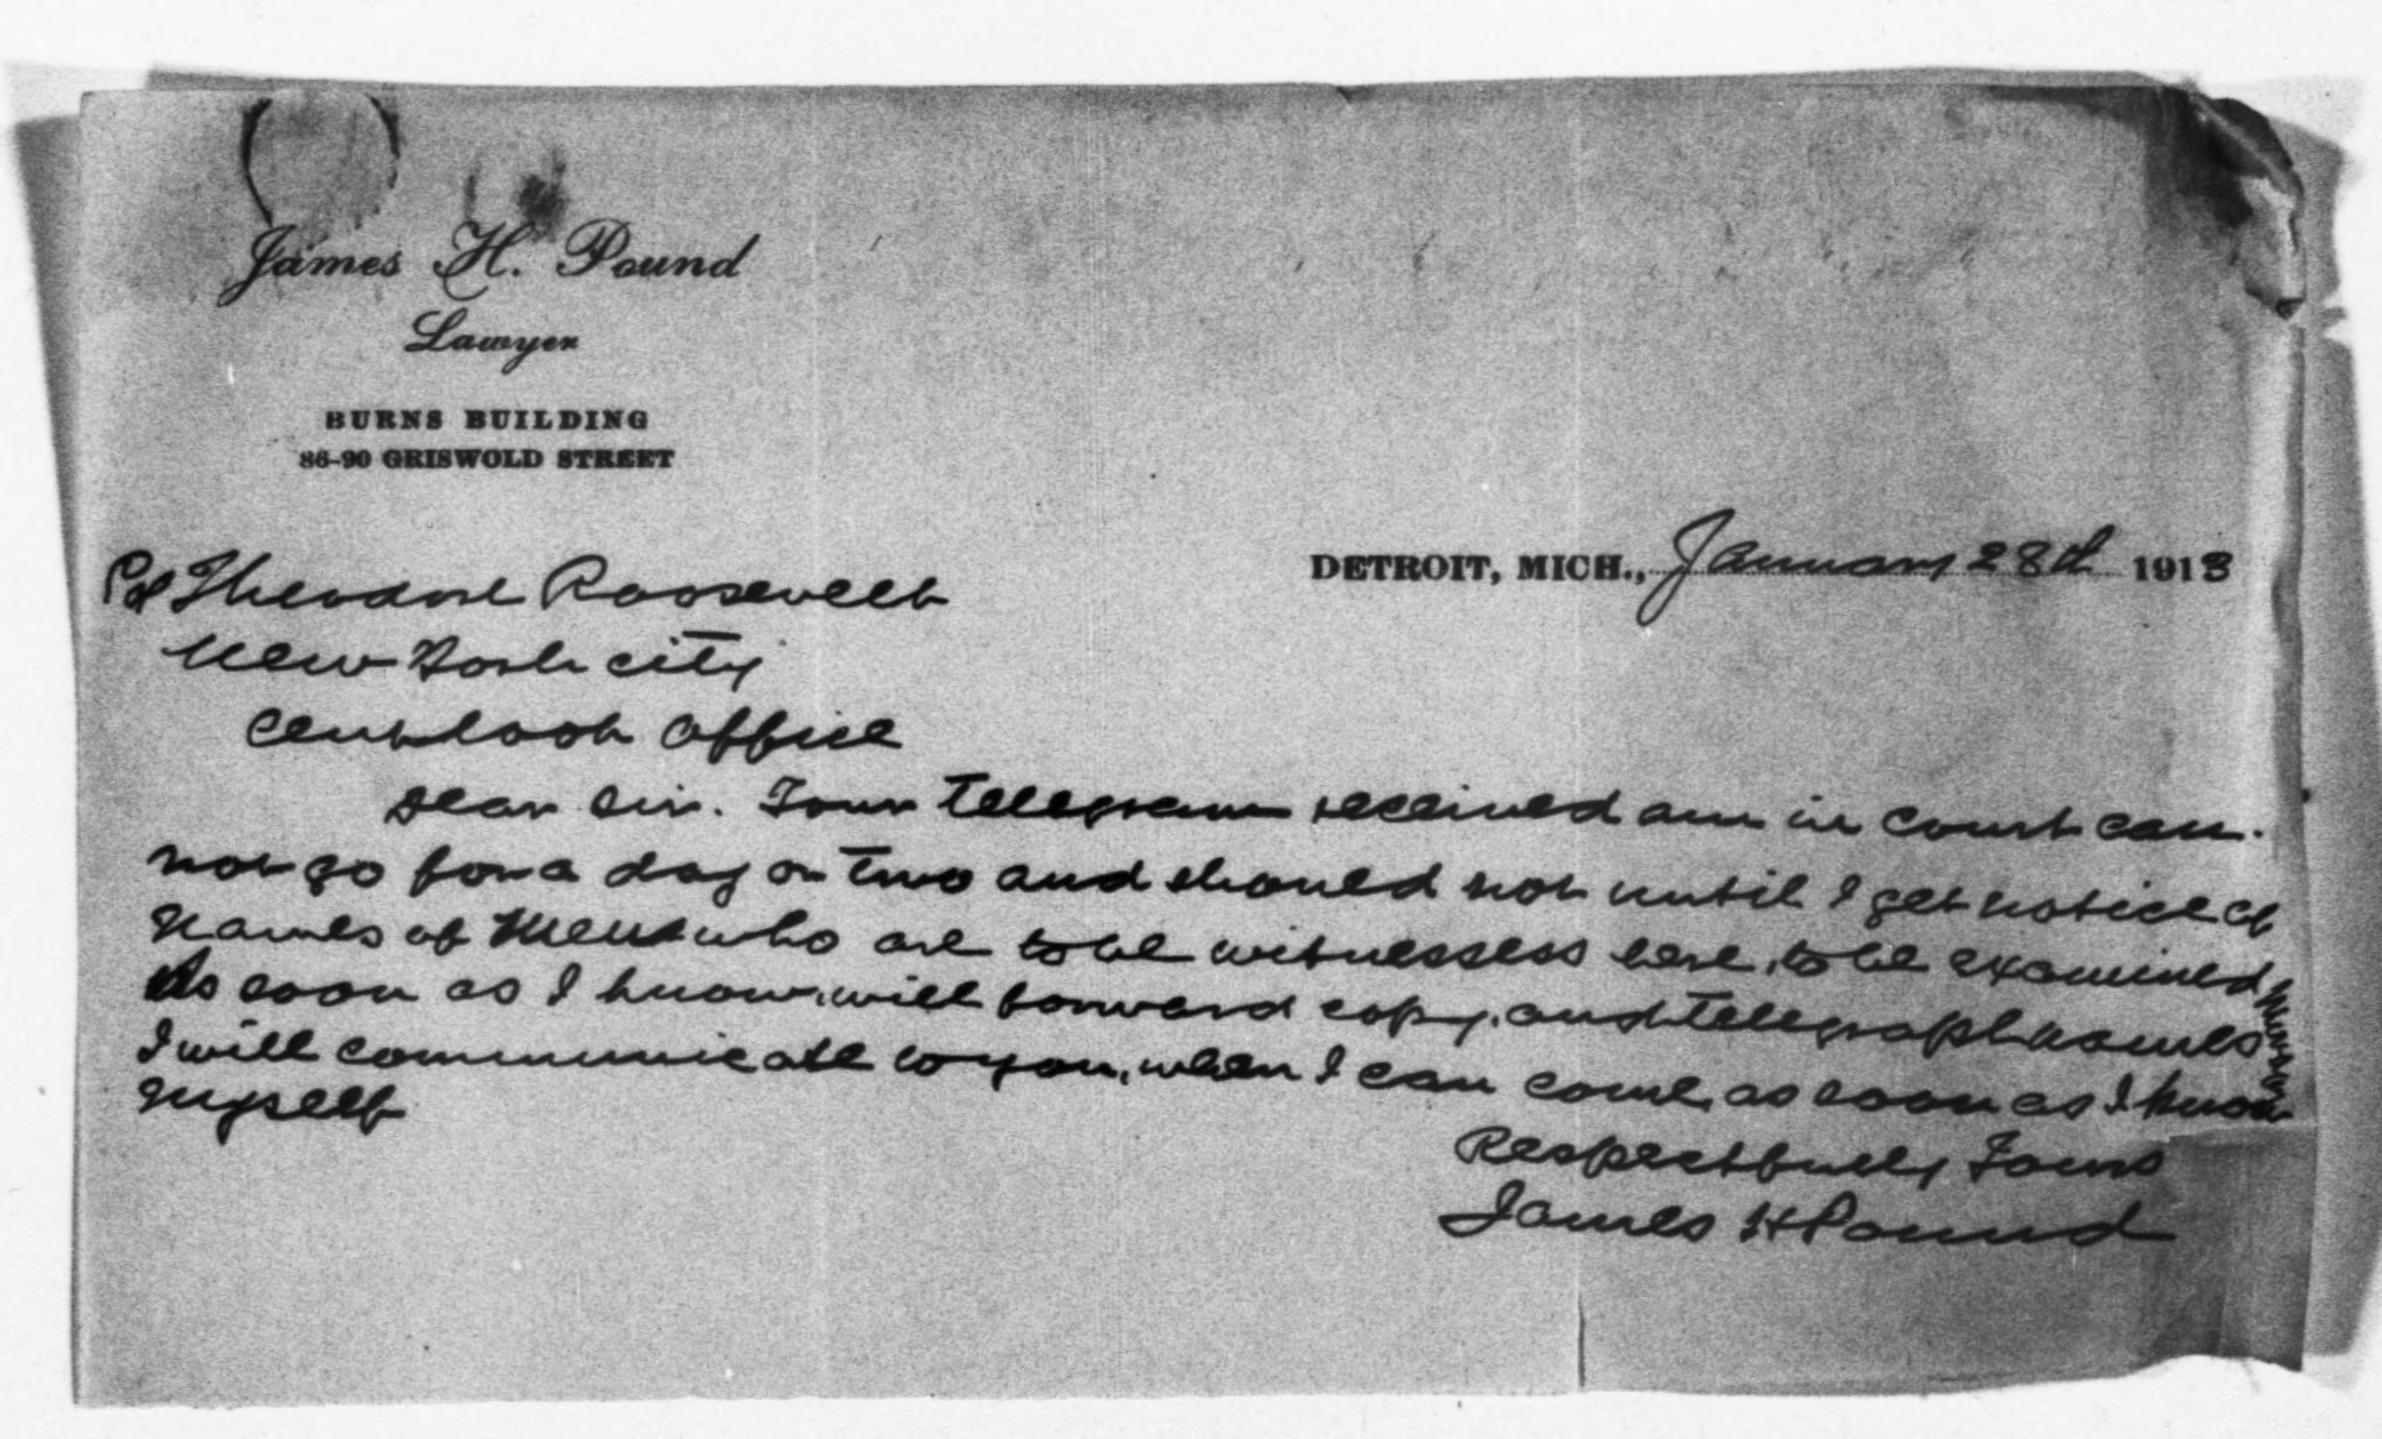 James H. Pound
Lawyer
BURNS BUILDING
86-90 GRISWOLD STREET
DETROIT, MICH., January 28th 1913
Col Theodore Roosevelt
New York city
Outlook office
Dear Sir. Your telegram received am in court can-
not go for a day or two and should not until I get notice of
names of men who are to be witnessess here, to be examined
As soon as I know, will forward copy, and telegraph names
I will communicate to you, when I can come, as soon as I know
myself
Respectfully Yours
James H Pound